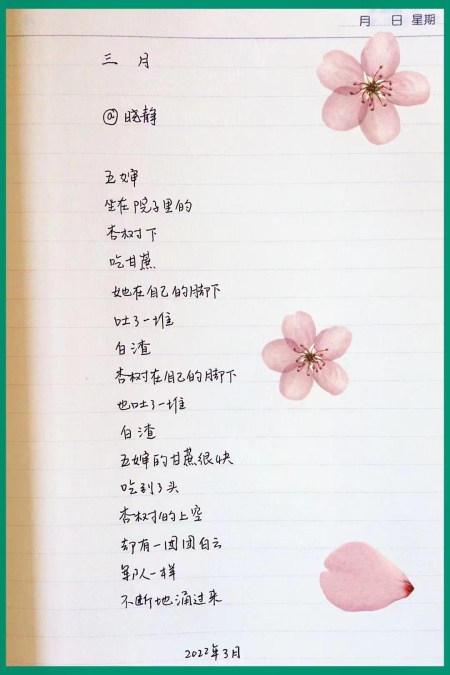 月 日 星期
三 月
@晓静
五婶
坐在院子里的
杏树下
吃甘蔗
她在自己的脚下
吐了一堆
白渣
杏树在自己的脚下
也吐了一堆
白渣
五婶的甘蔗很快
吃到了头
杏树的上空
却有一团团白云
军队一样
不断地涌过来
2022年3月